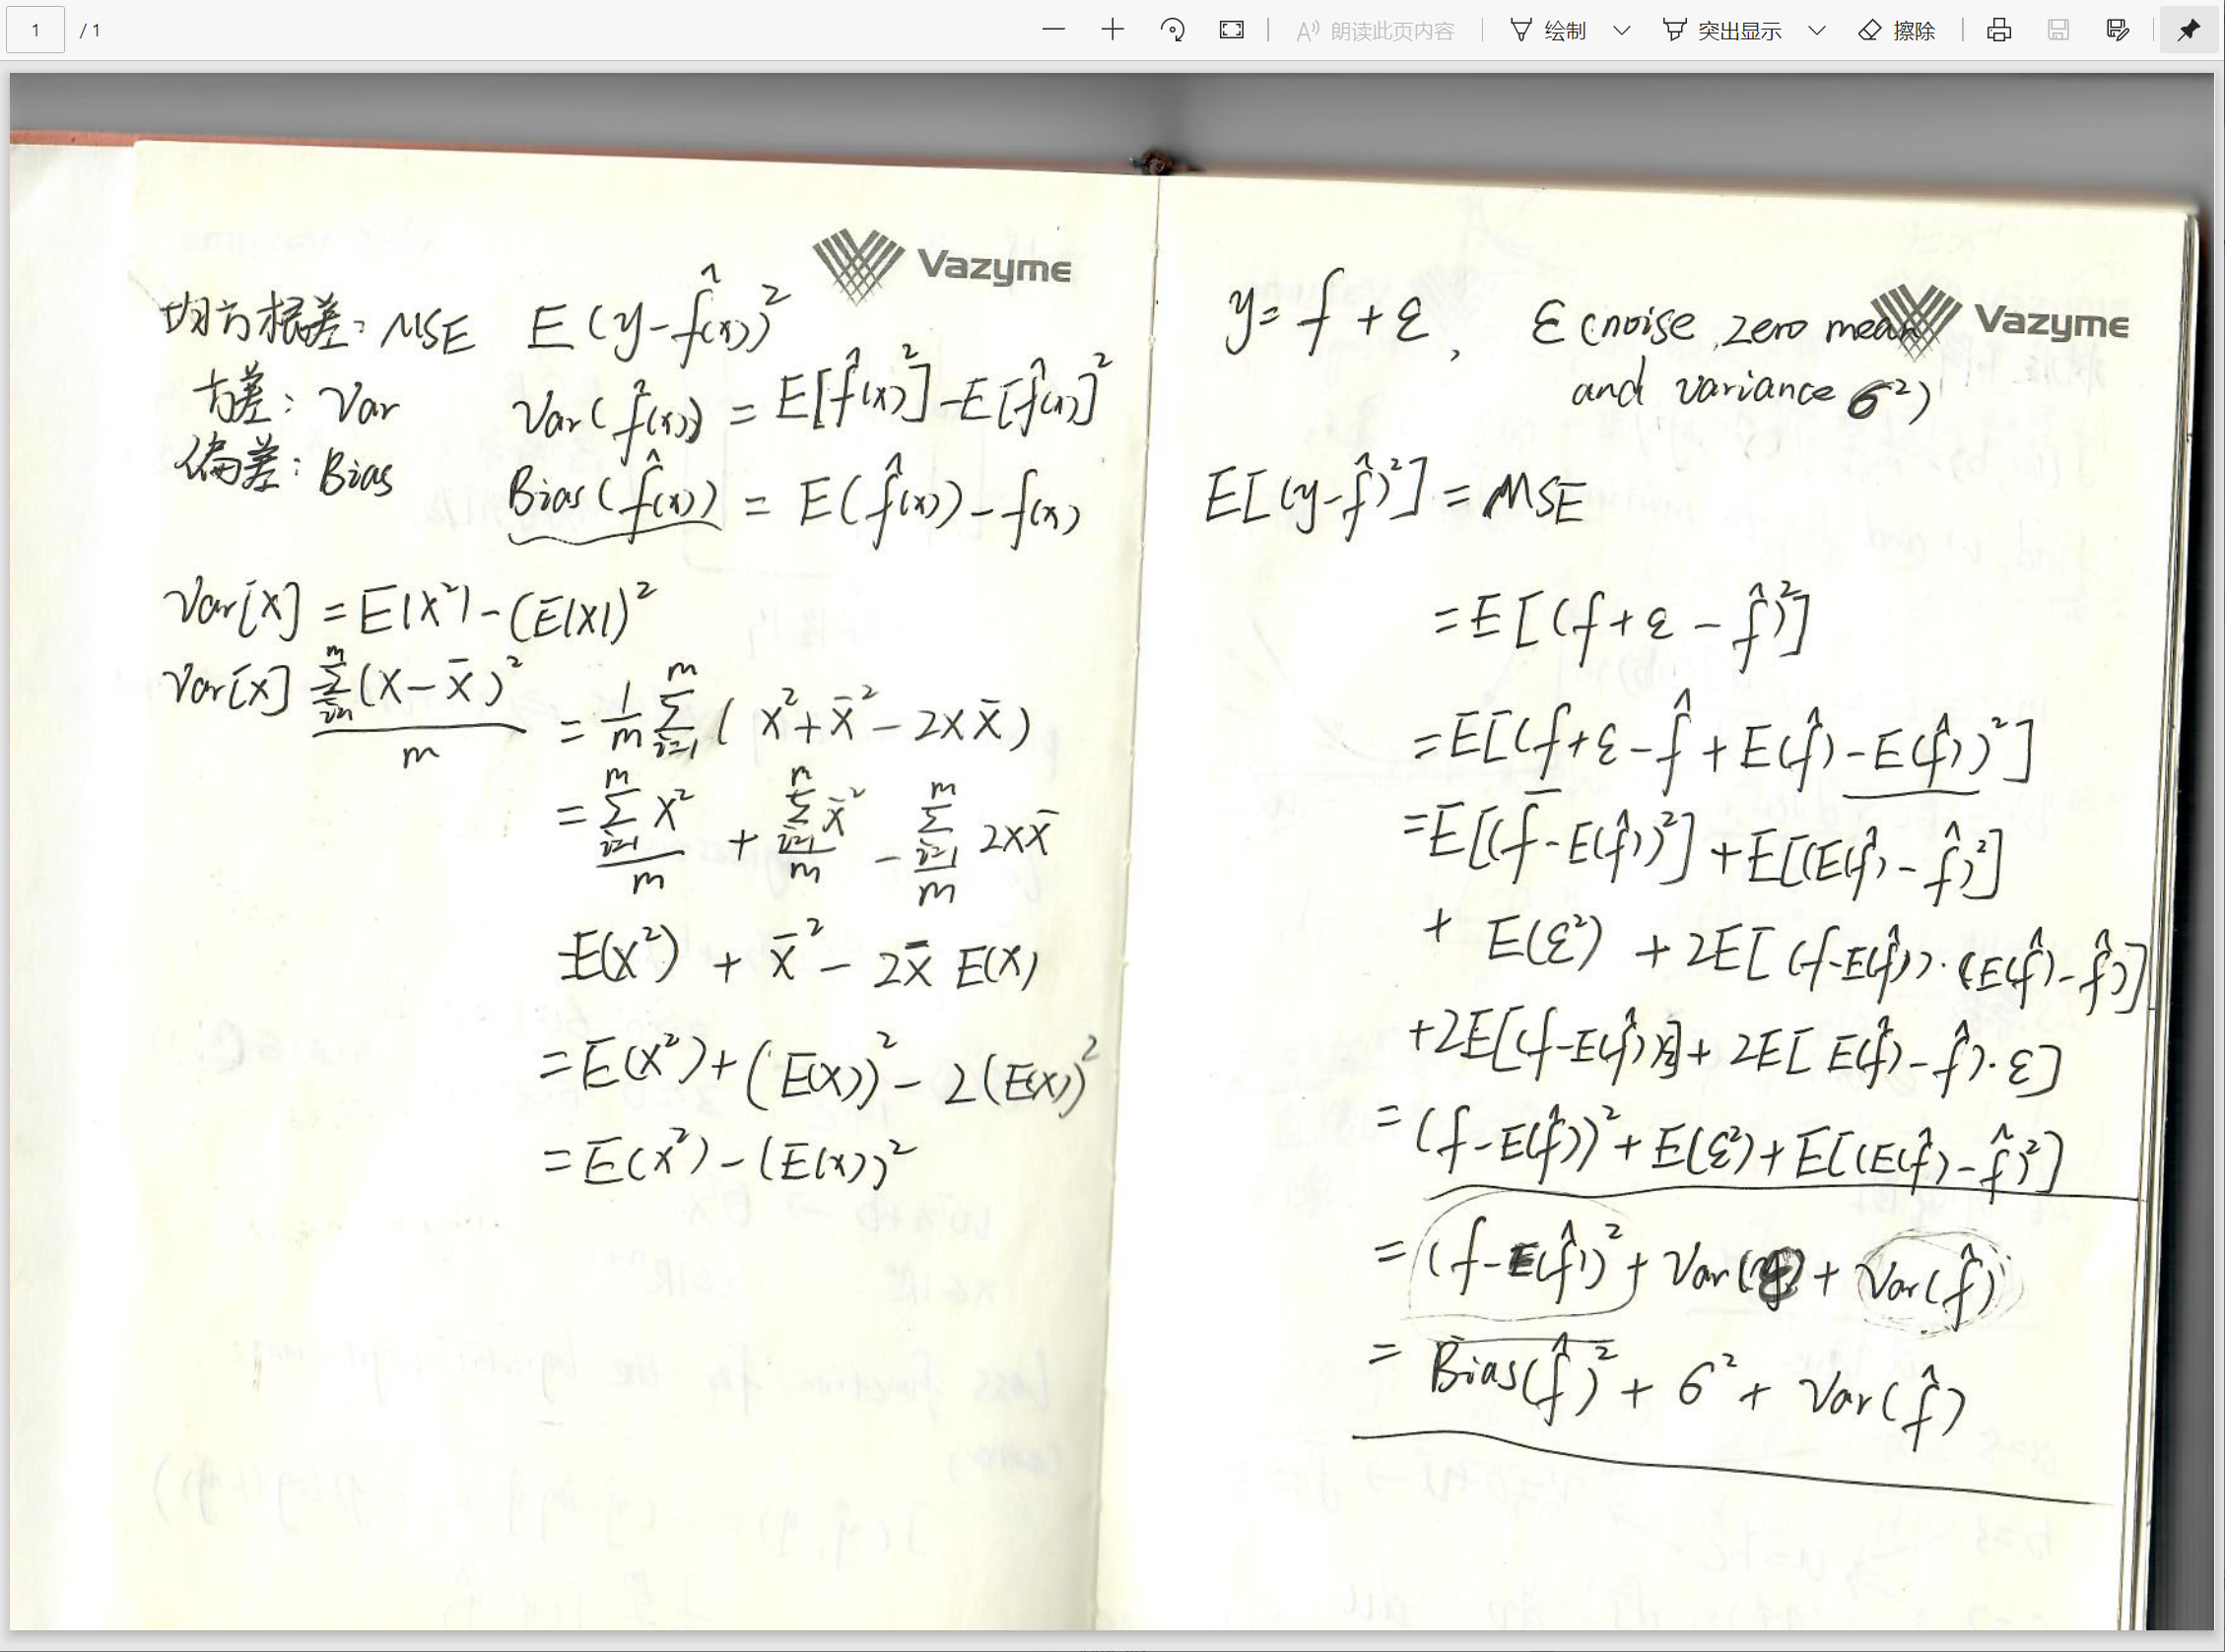 1 / 1
朗读此页内容 绘制 突出显示 擦除
Vazyme
均方根差: MSE E(y-f̂(x))²
方差: Var Var(f̂(x)) = E[f̂(x)²]-E[f̂(x)]²
偏差: Bias Bias(f̂(x)) = E(f̂(x))-f(x)
Var[X] = E|X²|-(E|X|)²
Var[X] Σᵢ₌₁ᵐ(X-X̄)²/m = 1/m Σᵢ₌₁ᵐ( X²+X̄²-2XX̄)
= Σᵢ₌₁ᵐX²/m + Σᵢ₌₁ᵐX̄²/m - Σᵢ₌₁ᵐ/m 2XX̄
=E(X²) + X̄² - 2X̄ E(X)
=E(X²)+(E(X))²-2(E(X))²
=E(X²)-(E(X))²
Vazyme
y= f + ε, ε (noise, zero mean
and variance σ²)
E[(y-f̂)²] = MSE
=E[(f+ε-f̂)²]
=E[(f+ε-f̂+E(f̂)-E(f̂))²]
=E[(f-E(f̂))²]+E[(E(f̂)-f̂)²]
+ E(ε²) +2E[(f-E(f̂))·(E(f̂)-f̂)]
+2E[(f-E(f̂))ε]+2E[E(f̂)-f̂)·ε]
=(f-E(f̂))²+E(ε²)+E[(E(f̂)-f̂)²]
=(f-E(f̂))²+Var(ε)+Var(f̂)
=Bias(f̂)²+σ²+Var(f̂)